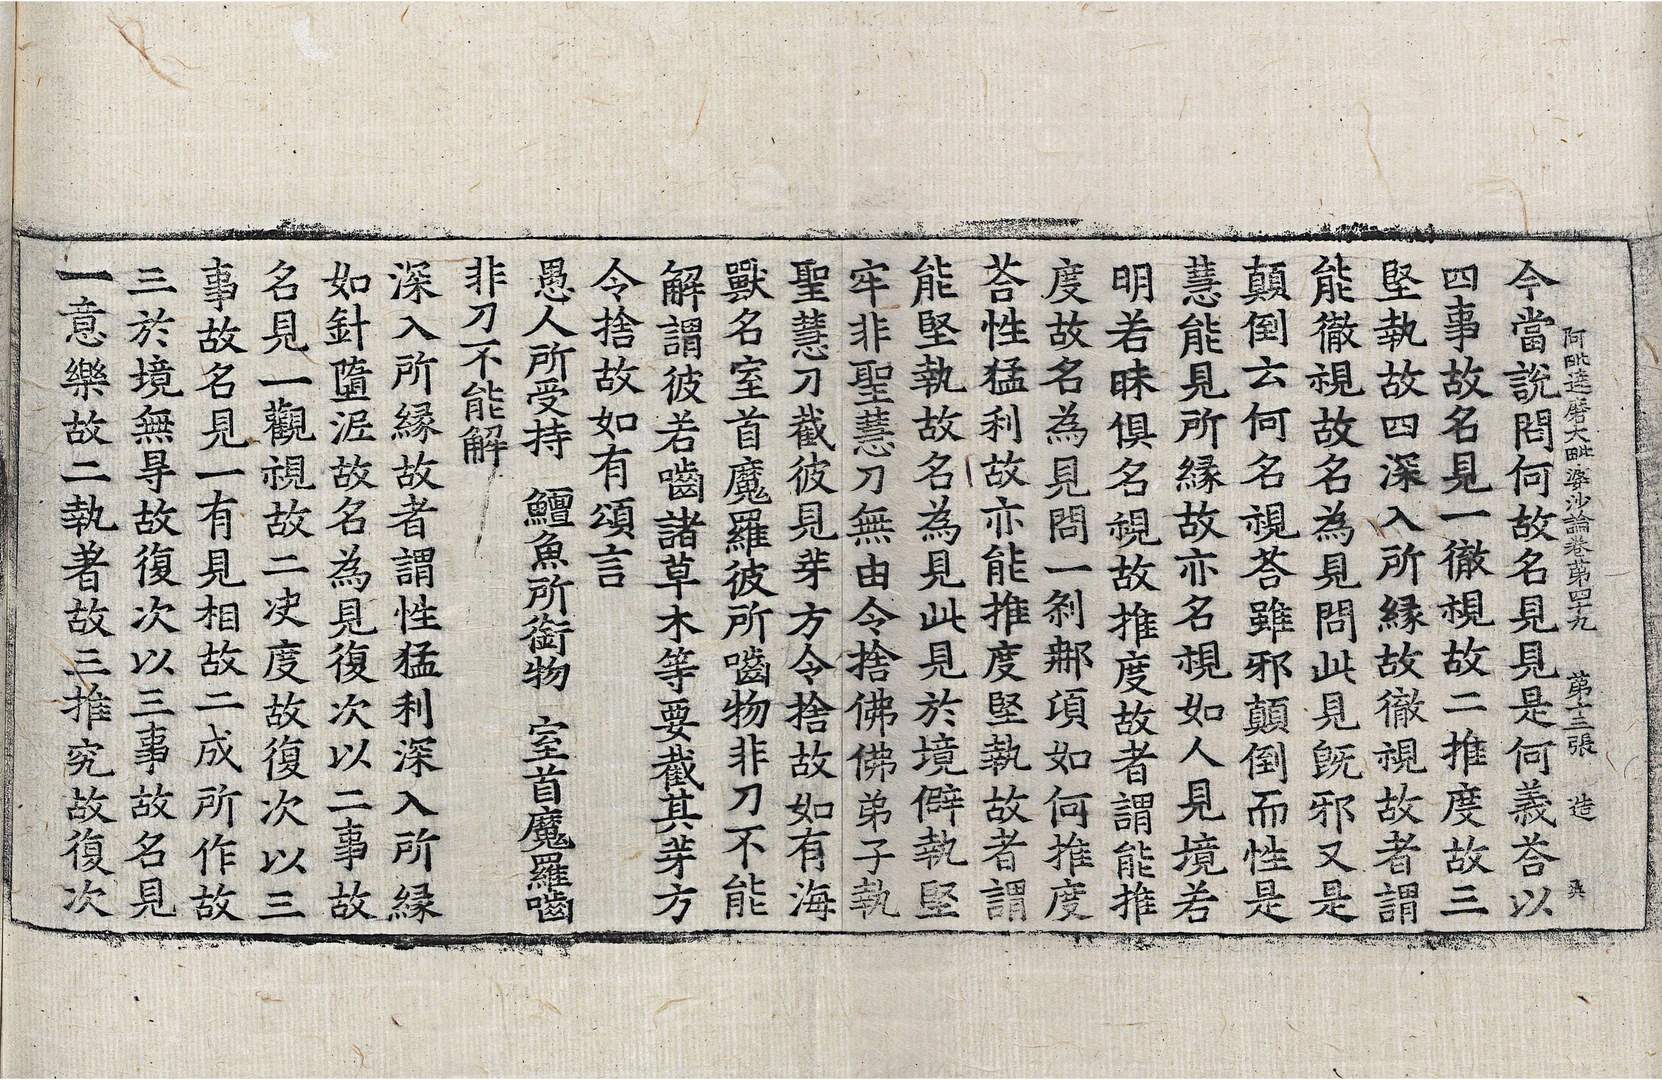 阿毗達磨大毗婆沙論卷第四十九 第十三張 造
今當說問何故名見見是何義荅以
四事故名見一徹視故二推度故三
堅執故四深入所緣故徹視故者謂
能徹視故名為見問此見旣邪又是
顛倒云何名視荅雖邪顛倒而性是
慧能見所緣故亦名視如人見境若
明若昧俱名視故推度故者謂能推
度故名為見問一刹那頃如何推度
荅性猛利故亦能推度堅執故者謂
能堅執故名為見此見於境僻執堅
牢非聖慧刀無由令捨佛佛弟子執
聖慧刀截彼見芽方令捨故如有海
獸名室首魔羅彼所嚙物非刀不能
解謂彼若嚙諸草木等要截其芽方
令捨故如有頌言
愚人所受持 鱣魚所銜物 室首魔羅嚙
非刀不能解
深入所緣故者謂性猛利深入所緣
如針墮泥故名為見復次以二事故
名見一觀視故二決度故復次以三
事故名見一有見相故二成所作故
三於境無㝵故復次以三事故名見
一意樂故二執著故三推究故復次